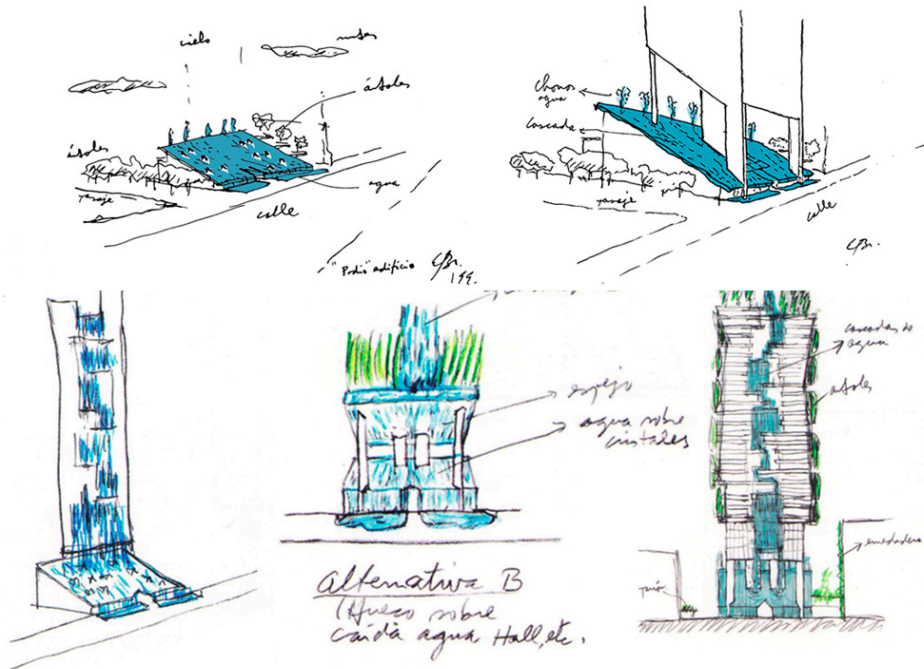 cielo
nubes
árboles
árboles
agua
pasaje
calle
"Podio" edificio
199.
Chorros
agua
Cascada
pasaje
calle
espejo
agua sobre
cristales
alternativa B
(Hueco sobre
caída agua Hall, etc.
cascadas de
agua
árboles
enredadera